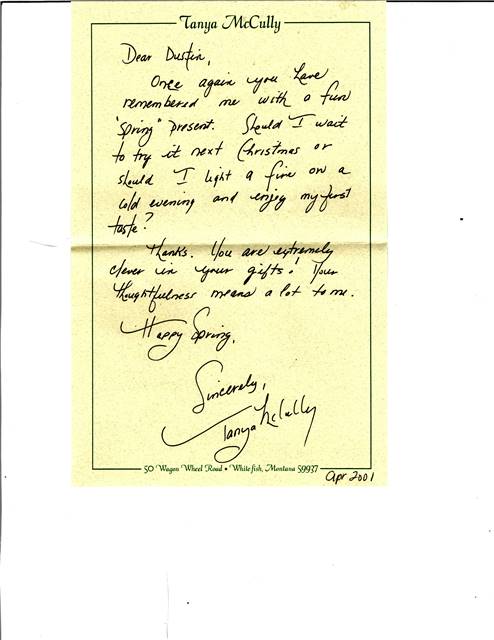 Tanya McCully
Dear Dustin,
Once again you have
remembered me with a fun
"Spring" present. Should I wait
to try it next Christmas or
should I light a fire on a
cold evening and enjoy my first
taste?
Thanks. You are extremely
clever in your gifts! Your
thoughtfulness means a lot to me.
Happy Spring,
Sincerely,
Tanya McCully
50 Wagon Wheel Road • Whitefish, Montana 59937
Apr 2001